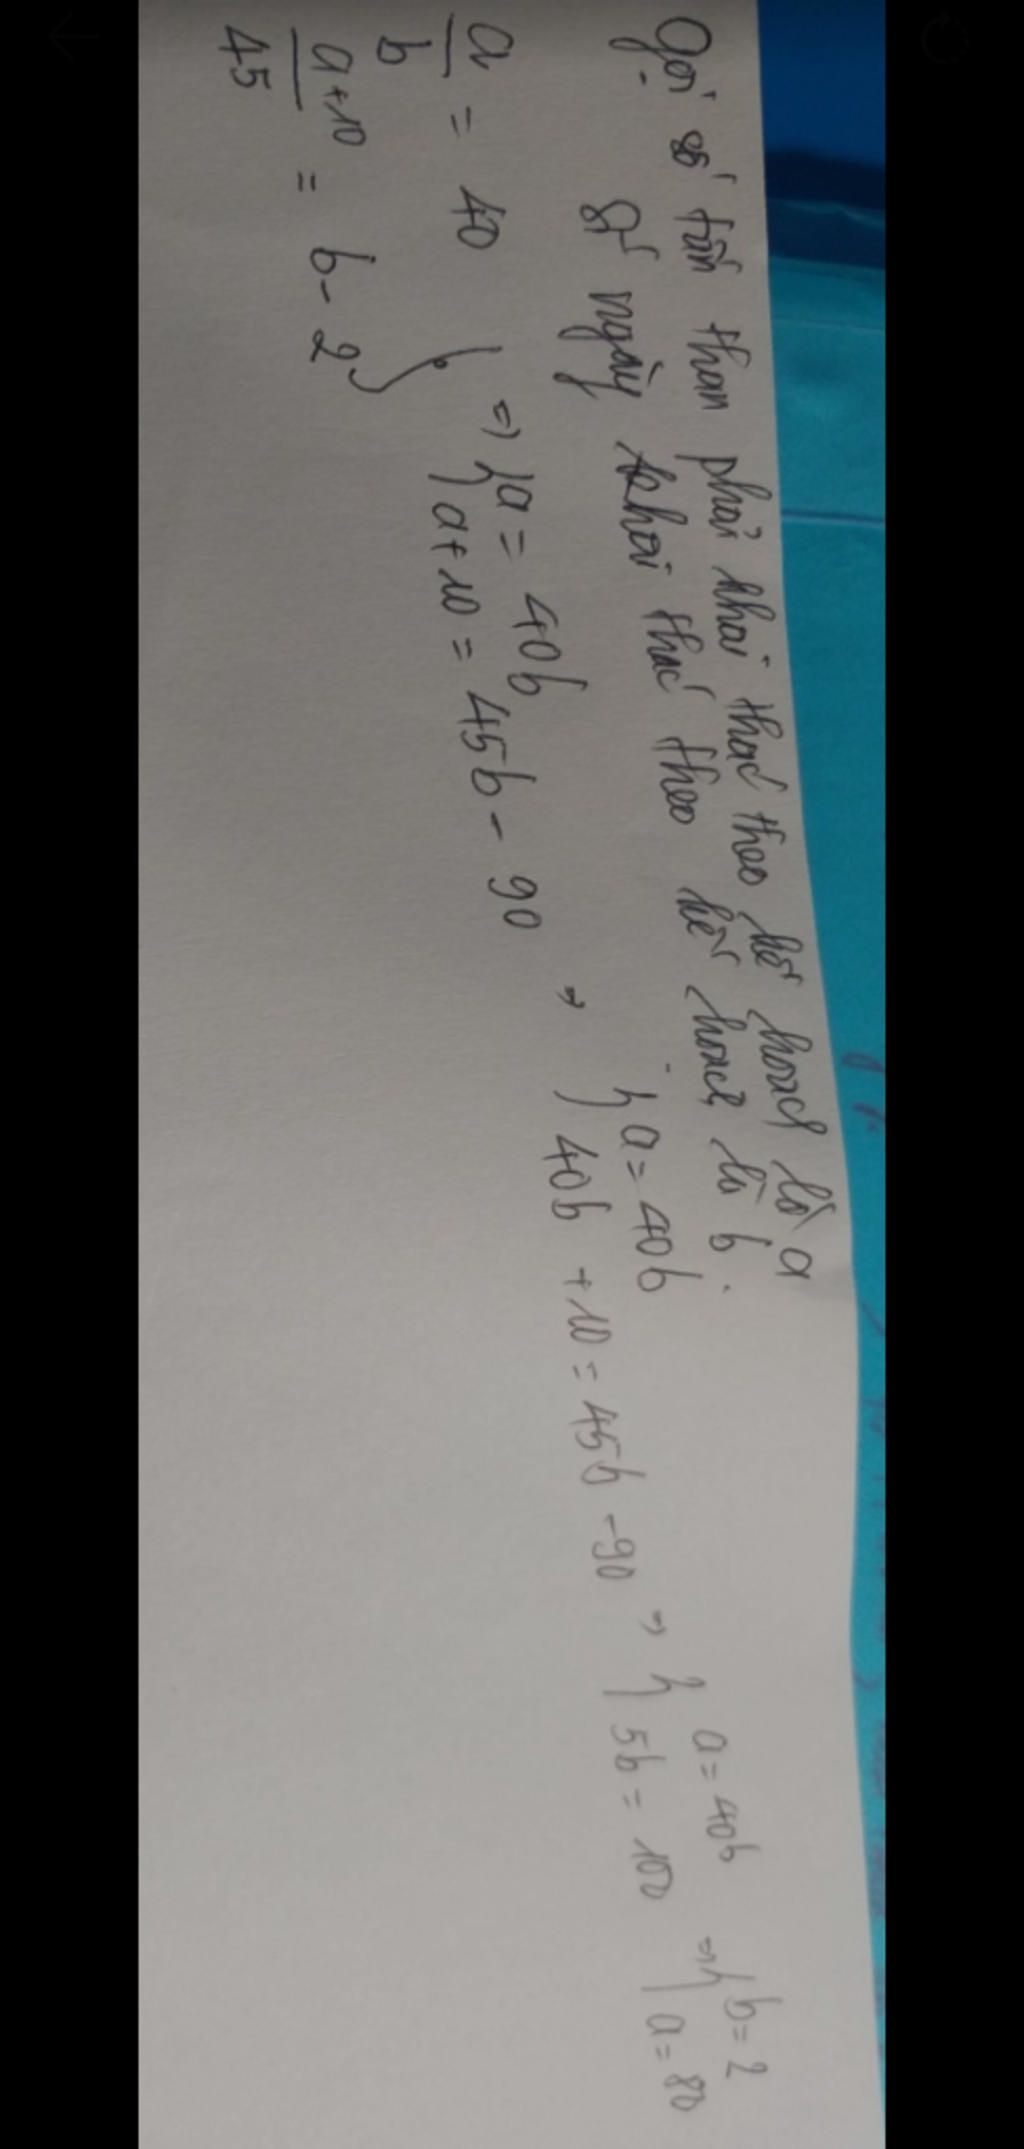 Gọi số tấn than phải khai thác theo kế hoạch là a
Số ngày khai thác theo kế hoạch là b.
a/b = 40
(a+10)/45 = b - 2 } => { a = 40b
a + 10 = 45b - 90
=> { a = 40b
40b + 10 = 45b - 90
=> { a = 40b
5b = 100
=> { b = 2
a = 80